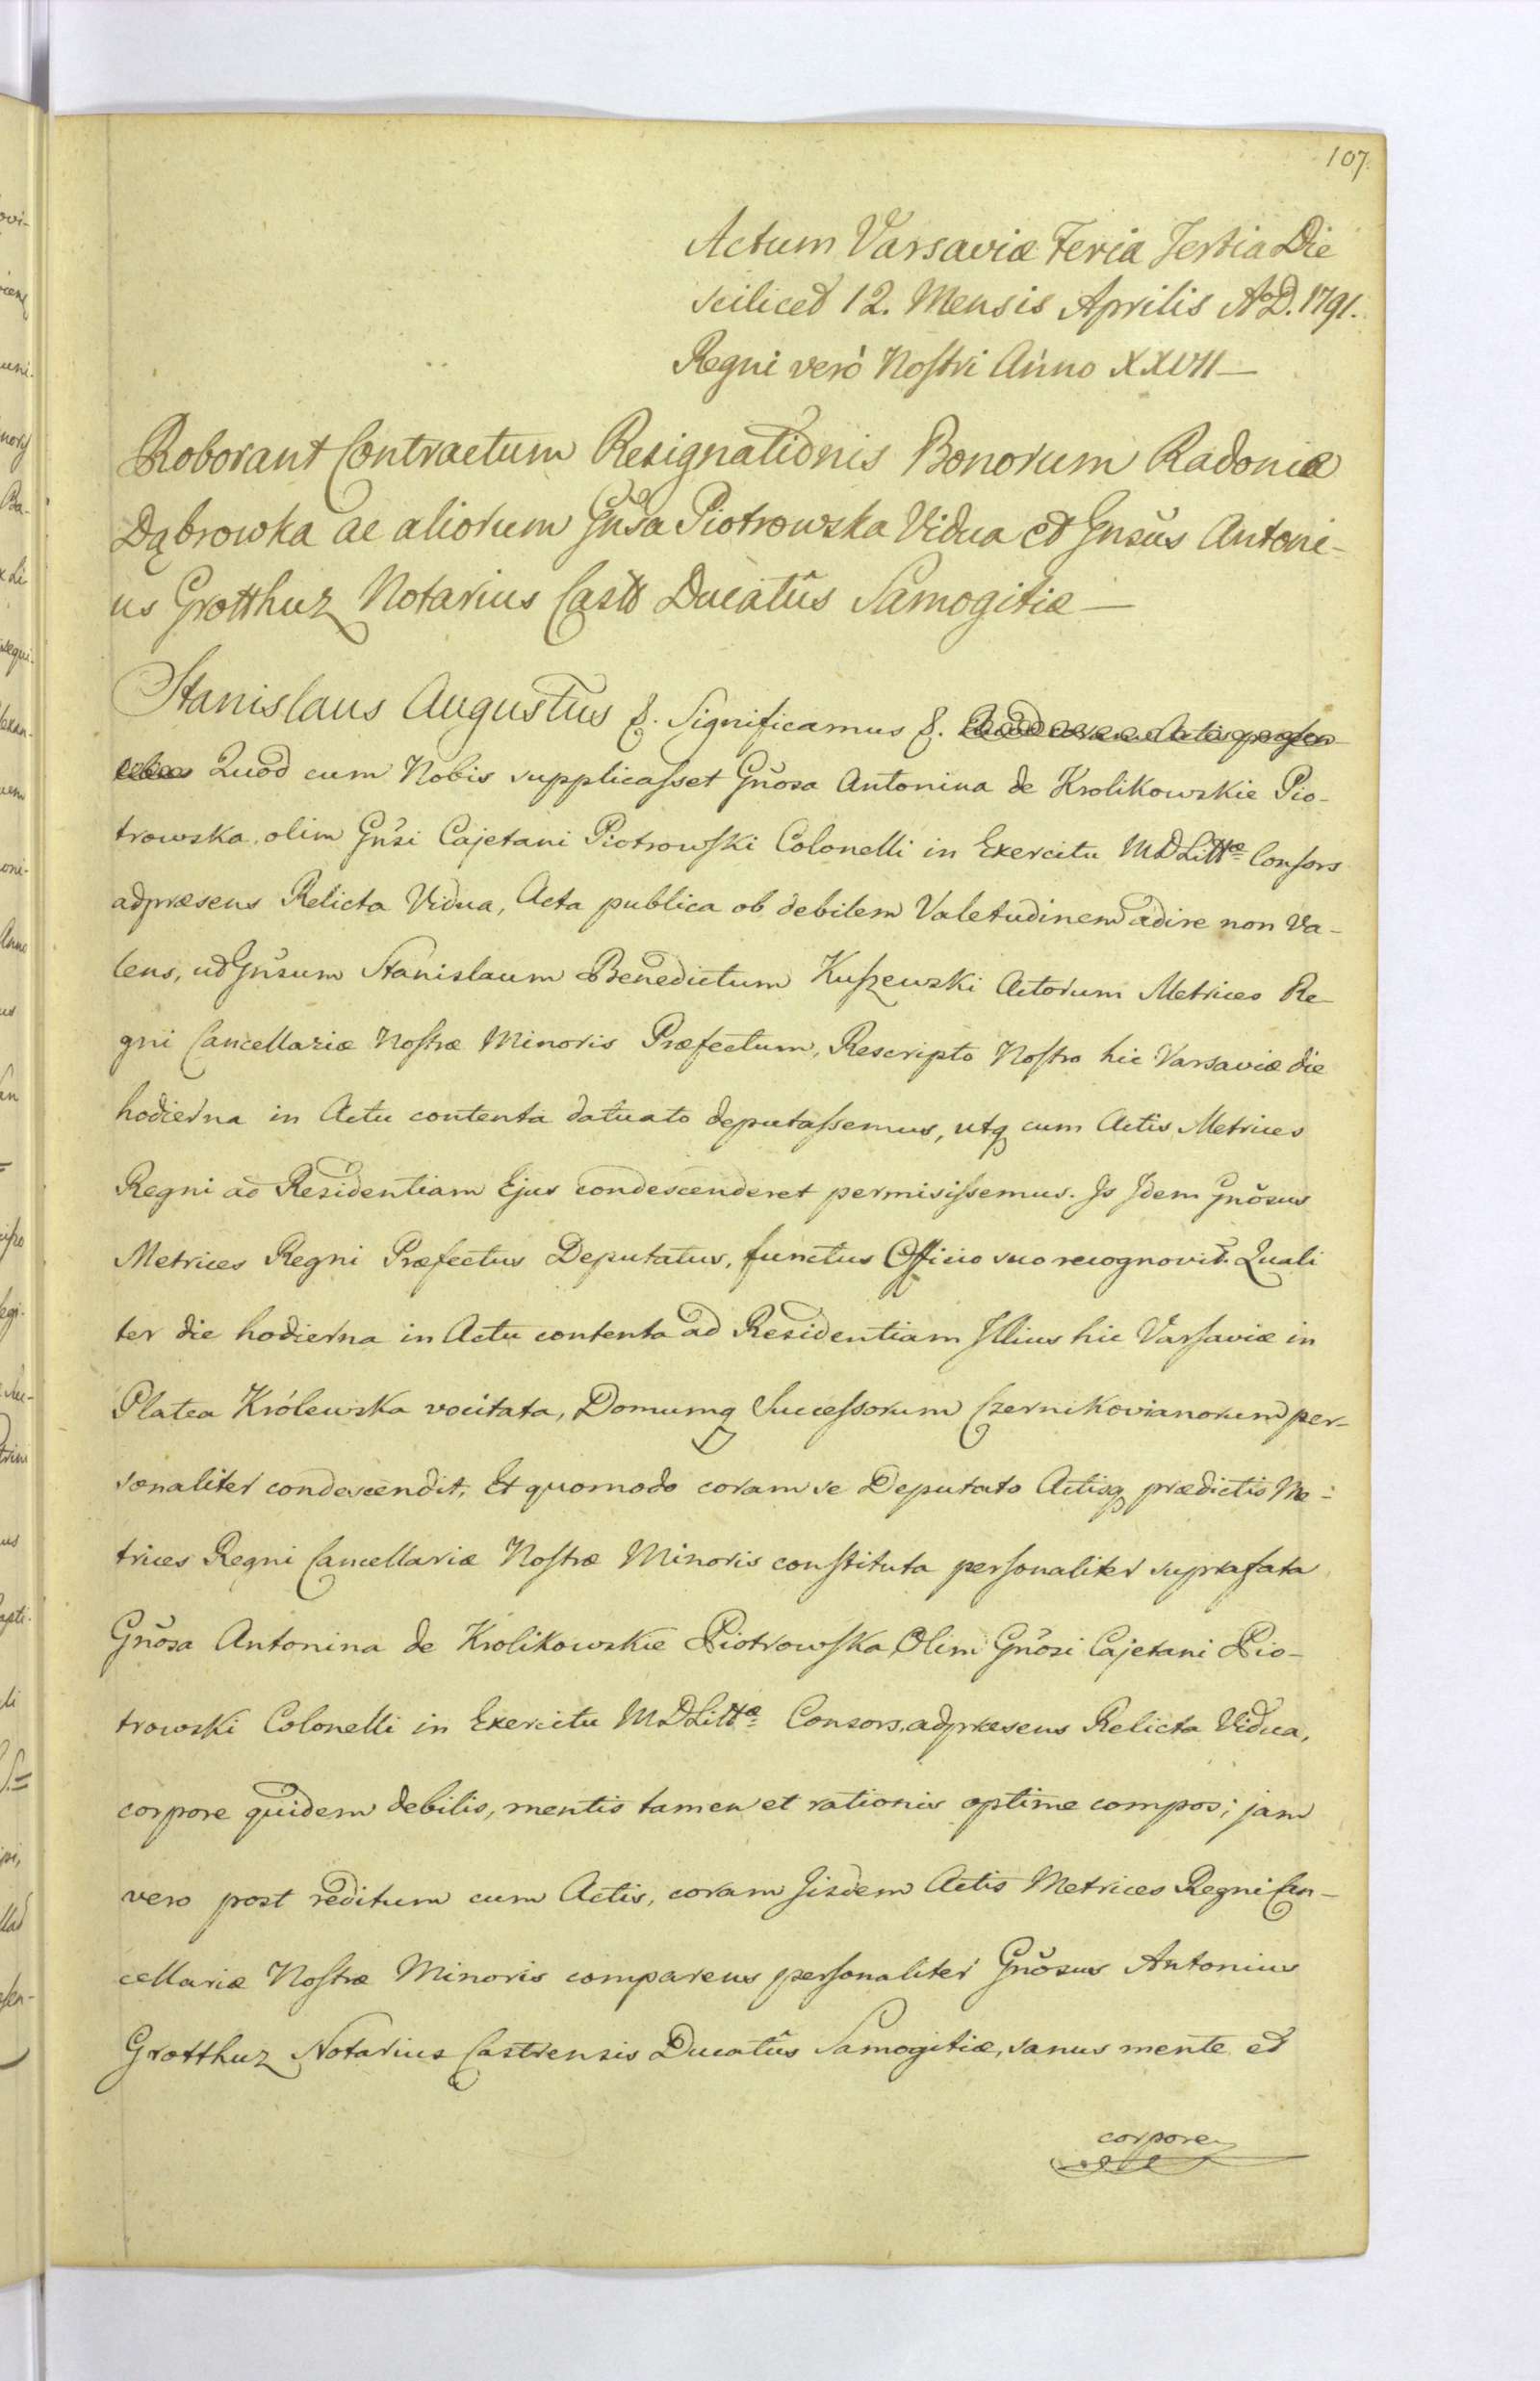 107.
Actum Varsaviæ Feria Tertia Die
scilicet 12. Mensis Aprilis AoD. 1791.
Regni verò Nostri Anno XXVII—
Roborant Contractum Resignationis Bonorum Radonia
Dąbrowka ac aliorum Gnsa Piotrowska Vidua et Gnsus Antoni-
us Grotthuz Notarius Castr Ducatûs Samogitiæ—
Stanislaus Augustus &. Significamus &.
Quod cum Nobis supplicasset Gnosa Antonina de Krolikowskie Pio-
trowska, olim Gnsi Cajetani Piotrowski Colonelli in Exercitu MDLittæ Consors
adpræsens Relicta Vidua, Acta publica ob debilem Valetudinem adire non va-
lens, ut Gnsum Stanislaum Benedictum Kuszewski Actorum Metrices Re-
gni Cancellariæ Nostræ Minoris Præfectum, Rescripto Nostro hic Varsaviæ die
hodierna in Actu contenta datuato deputassemus, utq cum Actis Metrices
Regni ad Residentiam Ejus condescenderet permisissemus. Is Idem Gnosus
Metrices Regni Præfectus Deputatus, functus Officio suo recognovit. Quali
ter die hodierna in Actu contenta ad Residentiam Illius hic Varsaviæ in
Platea Królewska vocitata, Domumq Successorum Czernikovianorum per-
sonaliter condescendit, Et quomodo coram se Deputato Actisq prædictis Me-
trices Regni Cancellariæ Nostræ Minoris constituta personaliter suprafata
Gnosa Antonina de Krolikowskie Piotrowska, Olim Gnosi Cajetani Pio-
trowski Colonelli in Exercitu MDLittæ Consors, adpræsens Relicta Vidua,
corpore quidem debilis, mentis tamen et rationis optime compos; jam
vero post reditum cum Actis, coram Iisdem Actis Metrices Regni Can-
cellariæ Nostræ Minoris comparens personaliter Gnosus Antonius
Grotthuz Notarius Castrensis Ducatûs Samogitiæ, sanus mente et
corpore